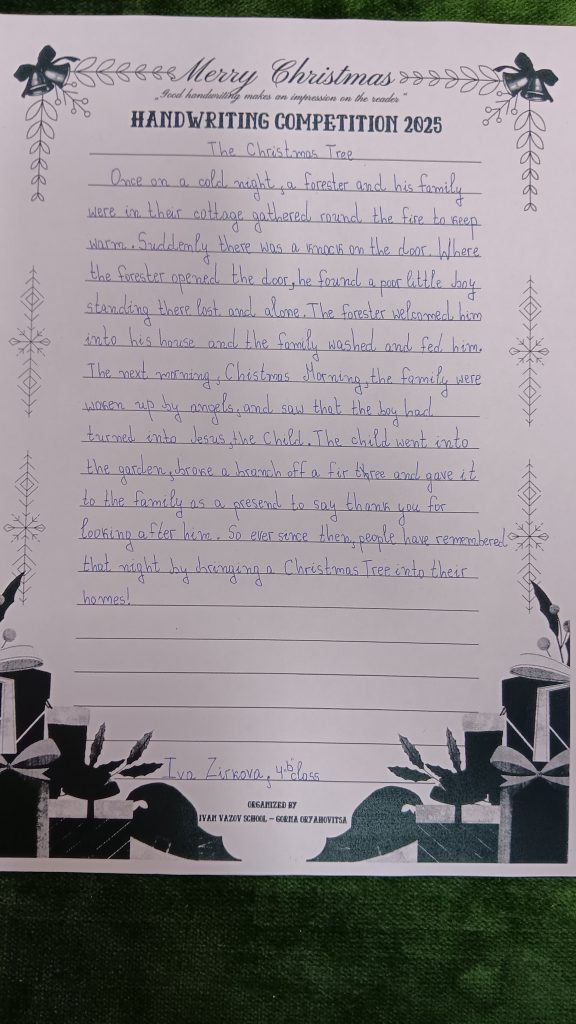 Merry Christmas
„Good handwriting makes an impression on the reader"
HANDWRITING COMPETITION 2025
The Christmas Tree
Once on a cold night, a forester and his family
were in their cottage gathered round the fire to keep
warm. Suddenly there was a knock on the door. Where
the forester opened the door, he found a poor little boy
standing there lost and alone. The forester welcomed him
into his house and the family washed and fed him.
The next morning, Chistmas Morning, the family were
woken up by angels, and saw that the boy had
turned into Jesus, the Child. The child went into
the garden, broke a branch off a fir three and gave it
to the family as a presend to say thank you for
looking after him. So ever since then, people have remembered
that night by bringing a Christmas Tree into their
homes!
Iva Zirkova, 4"b" class
ORGANIZED BY
IVAN VAZOV SCHOOL – GORNA ORYAHOVITSA